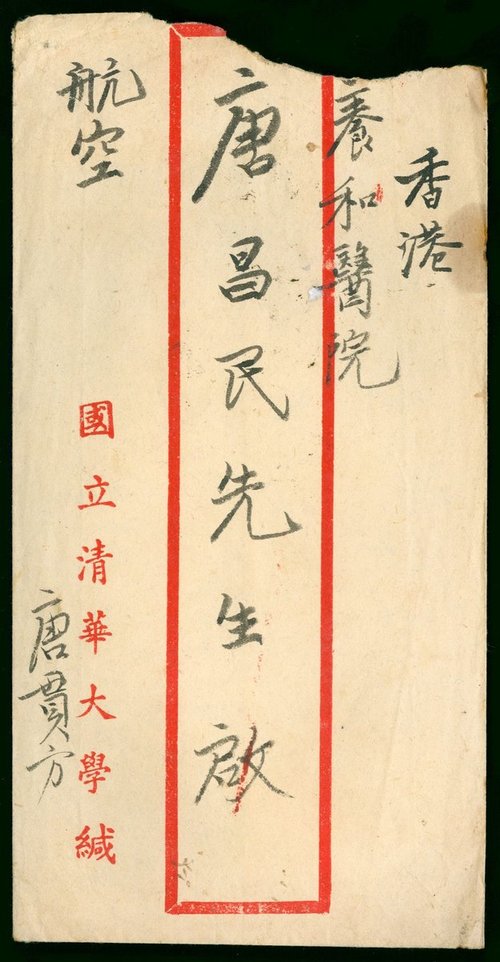 香港
養和醫院
唐昌民先生啟
航空
國立清華大學緘
唐貫方